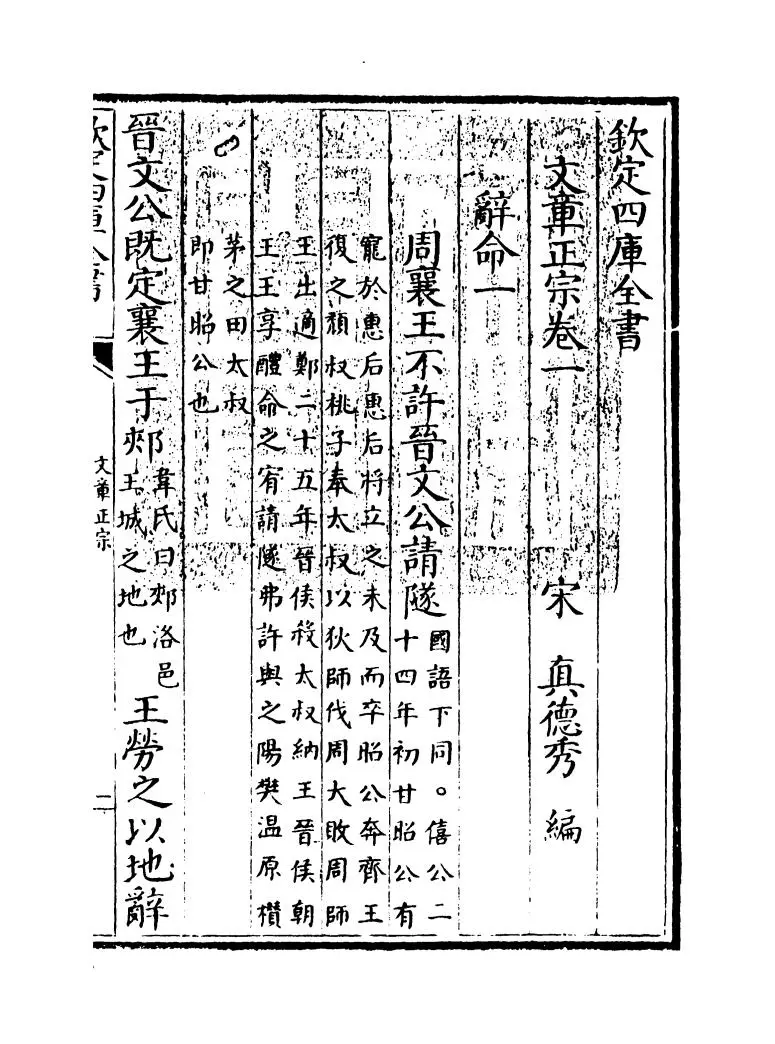 欽定四庫全書
文章正宗卷一 宋 真德秀 編
辭命一
周襄王不許晉文公請隧國語下同。僖公二
十四年初甘昭公有
寵於惠后惠后将立之未及而卒昭公奔齊王
復之頽叔桃子奉太叔以狄師伐周大敗周師
王出適鄭二十五年晉侯殺太叔納王晉侯朝
王王享醴命之宥請隧弗許與之陽樊温原欑
茅之田太叔
即甘昭公也
晉文公既定襄王于郟韋氏曰郟洛邑
王城之地也王勞之以地辭
文章正宗